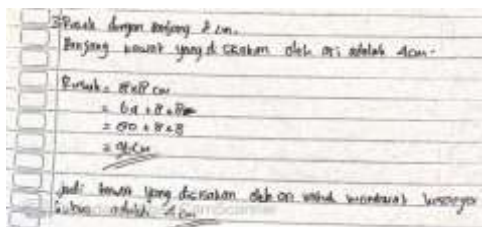 3) Rusuk dengan panjang 8 cm.
Panjang kawat yang di sisakan oleh ori adalah 4cm.
Rusuk = 8x8 cm
= 64 + 8 + 8
= 80 + 8 + 8
= 96 cm
Jadi kawat yang disisakan oleh ori untuk membuat kerangka
kubus adalah 4 cm